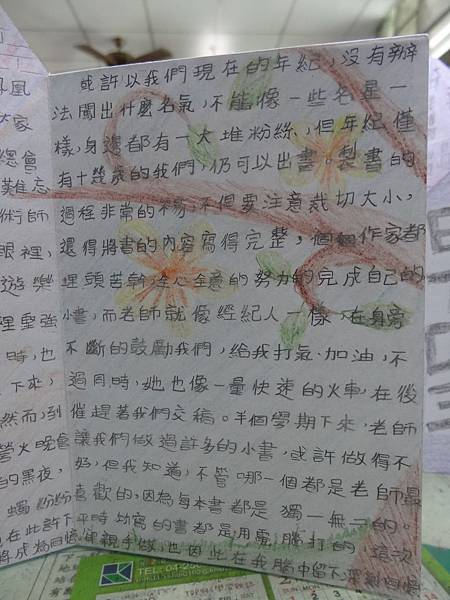 或許以我們現在的年紀,沒有辦
法闖出什麼名氣,不能像一些名星一
樣,身邊都有一大堆粉絲,但年紀僅
有十幾歲的我們,仍可以出書。製書的
過程非常的不易,不但要注意裁切大小,
還得將書的內容寫得完整,個個作家都
埋頭苦幹全心全意的努力的完成自己的
小書,而老師就像經紀人一樣,在身旁
不斷的鼓勵我們,給我打氣、加油,不
過同時,她也像一量快速的火車,在後
催趕著我們交稿。半個學期下來,老師
讓我們做過許多的小書,或許做得不
好,但我知道,不管哪一個都是老師最
喜歡的,因為每本書都是獨一無二的。
平時幼寫的書都是用電腦打的,這次
親手做,也因此在我腦中留下深刻回憶
鳳
大家
總會
難忘
術師
眼裡,
遊樂
裡堅強
時,也
下來,
然而,到
營火晚會
的黑夜,
蠋粉粉
在此許下
將成為回憶
TEL: 04-2